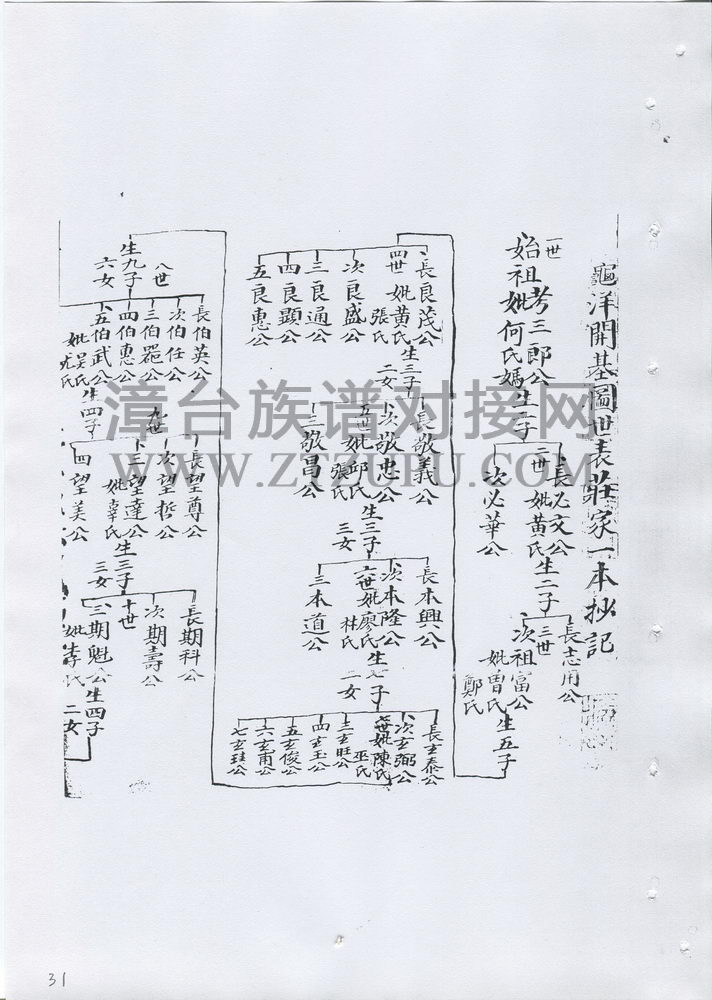 龜洋開基圖世表莊家一本抄記
一世
始祖考三郎公
妣何氏媽生二子
長必文公
二世妣黃氏生二子
次必華公
長志用公
三世
次祖富公
妣曾氏生五子
鄭氏
長良茂公
四世妣黃氏生三子
張氏二女
次良盛公
三良通公
四良顯公
五良惠公
長敬義公
次敬忠公
五世妣邱氏生三子
張氏三女
三敬昌公
長本興公
次本隆公
六世妣廖氏生七子
杜氏二女
三本道公
長玄泰公
次玄弼公
七世妣陳氏
巫氏
三玄旺公
四玄玉公
五玄俊公
六玄甫公
七玄珪公
生九子
六女
八世
長伯英公
次伯任公
三伯噐公
四伯惠公
五伯武公
妣吳氏生四子
尤氏
九世
長望尊公
次望哲公
三望達公
妣辜氏生三子
三女
四望美公
十世
長期科公
次期壽公
三期魁公
妣李氏生四子
二女
漳台族谱对接网
WWW.ZTZUPU.COM
31